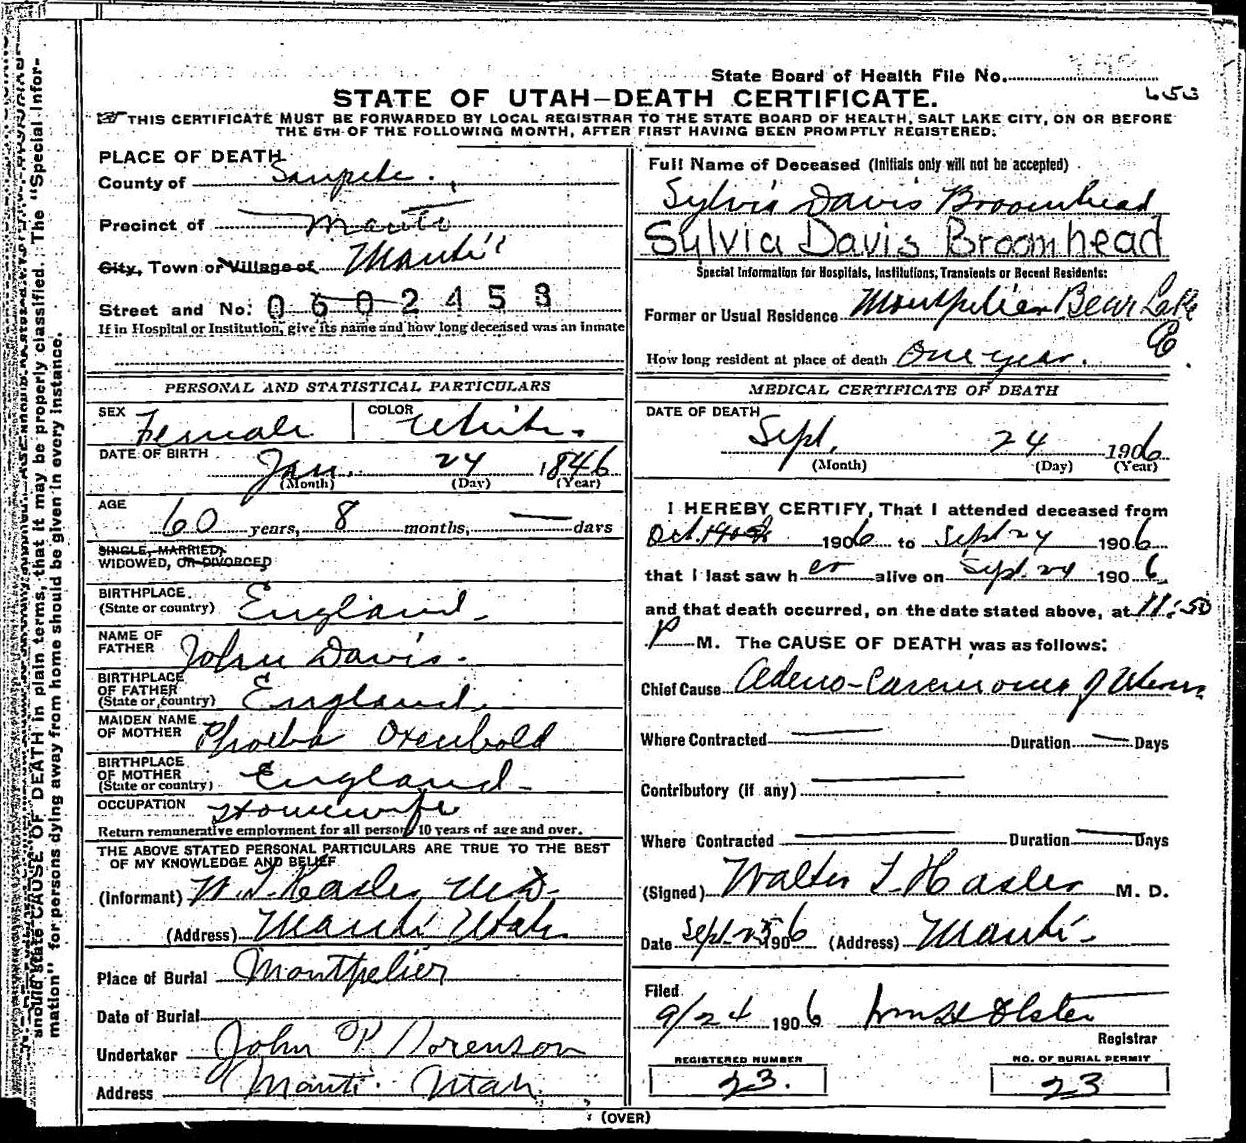 State Board of Health File No.
653
STATE OF UTAH—DEATH CERTIFICATE.
THIS CERTIFICATE MUST BE FORWARDED BY LOCAL REGISTRAR TO THE STATE BOARD OF HEALTH, SALT LAKE CITY, ON OR BEFORE
THE 5TH OF THE FOLLOWING MONTH, AFTER FIRST HAVING BEEN PROMPTLY REGISTERED.
PLACE OF DEATH
County of Sanpete.
Precinct of Manti
City, Town or Village of Manti
Street and No. 0602453
If in Hospital or Institution, give its name and how long deceased was an inmate
PERSONAL AND STATISTICAL PARTICULARS
SEX Female COLOR White.
DATE OF BIRTH Jan. 24 1846
(Month) (Day) (Year)
AGE 60 years, 8 months, — days
SINGLE, MARRIED,
WIDOWED, OR DIVORCED
BIRTHPLACE
(State or country) England.
NAME OF
FATHER John Davis.
BIRTHPLACE
OF FATHER
(State or country) England.
MAIDEN NAME
OF MOTHER Phoeba
BIRTHPLACE
OF MOTHER
(State or country) England
OCCUPATION Housewife
Return remunerative employment for all persons 10 years of age and over.
THE ABOVE STATED PERSONAL PARTICULARS ARE TRUE TO THE BEST
OF MY KNOWLEDGE AND BELIEF
(Informant) W. T. Hasler M.D.
(Address) Manti Utah
Place of Burial Montpelier
Date of Burial
Undertaker John P. Sorenson
Address Manti. Utah.
Full Name of Deceased (Initials only will not be accepted)
Sylvia Davis Broomhead
Sylvia Davis Broomhead
Special Information for Hospitals, Institutions, Transients or Recent Residents:
Former or Usual Residence Montpelier Bear Lake
Co.
How long resident at place of death One year.
MEDICAL CERTIFICATE OF DEATH
DATE OF DEATH
Sept. 24 1906
(Month) (Day) (Year)
I HEREBY CERTIFY, That I attended deceased from
Oct. 1906 to Sept 24 1906
that I last saw her alive on Sept. 24 1906
and that death occurred, on the date stated above, at 11:50
P M. The CAUSE OF DEATH was as follows:
Chief Cause Adeno-Carcinoma of Uterus
Where Contracted — Duration — Days
Contributory (If any) —
Where Contracted — Duration — Days
(Signed) Walter T Hasler M. D.
Date Sept. 25 1906 (Address) Manti.
Filed
9/24 1906
Registrar
REGISTERED NUMBER
23.
NO. OF BURIAL PERMIT
23
(OVER)
should state CAUSE OF DEATH in plain terms, that it may be properly classified. The "Special Infor-
mation" for persons dying away from home should be given in every instance.